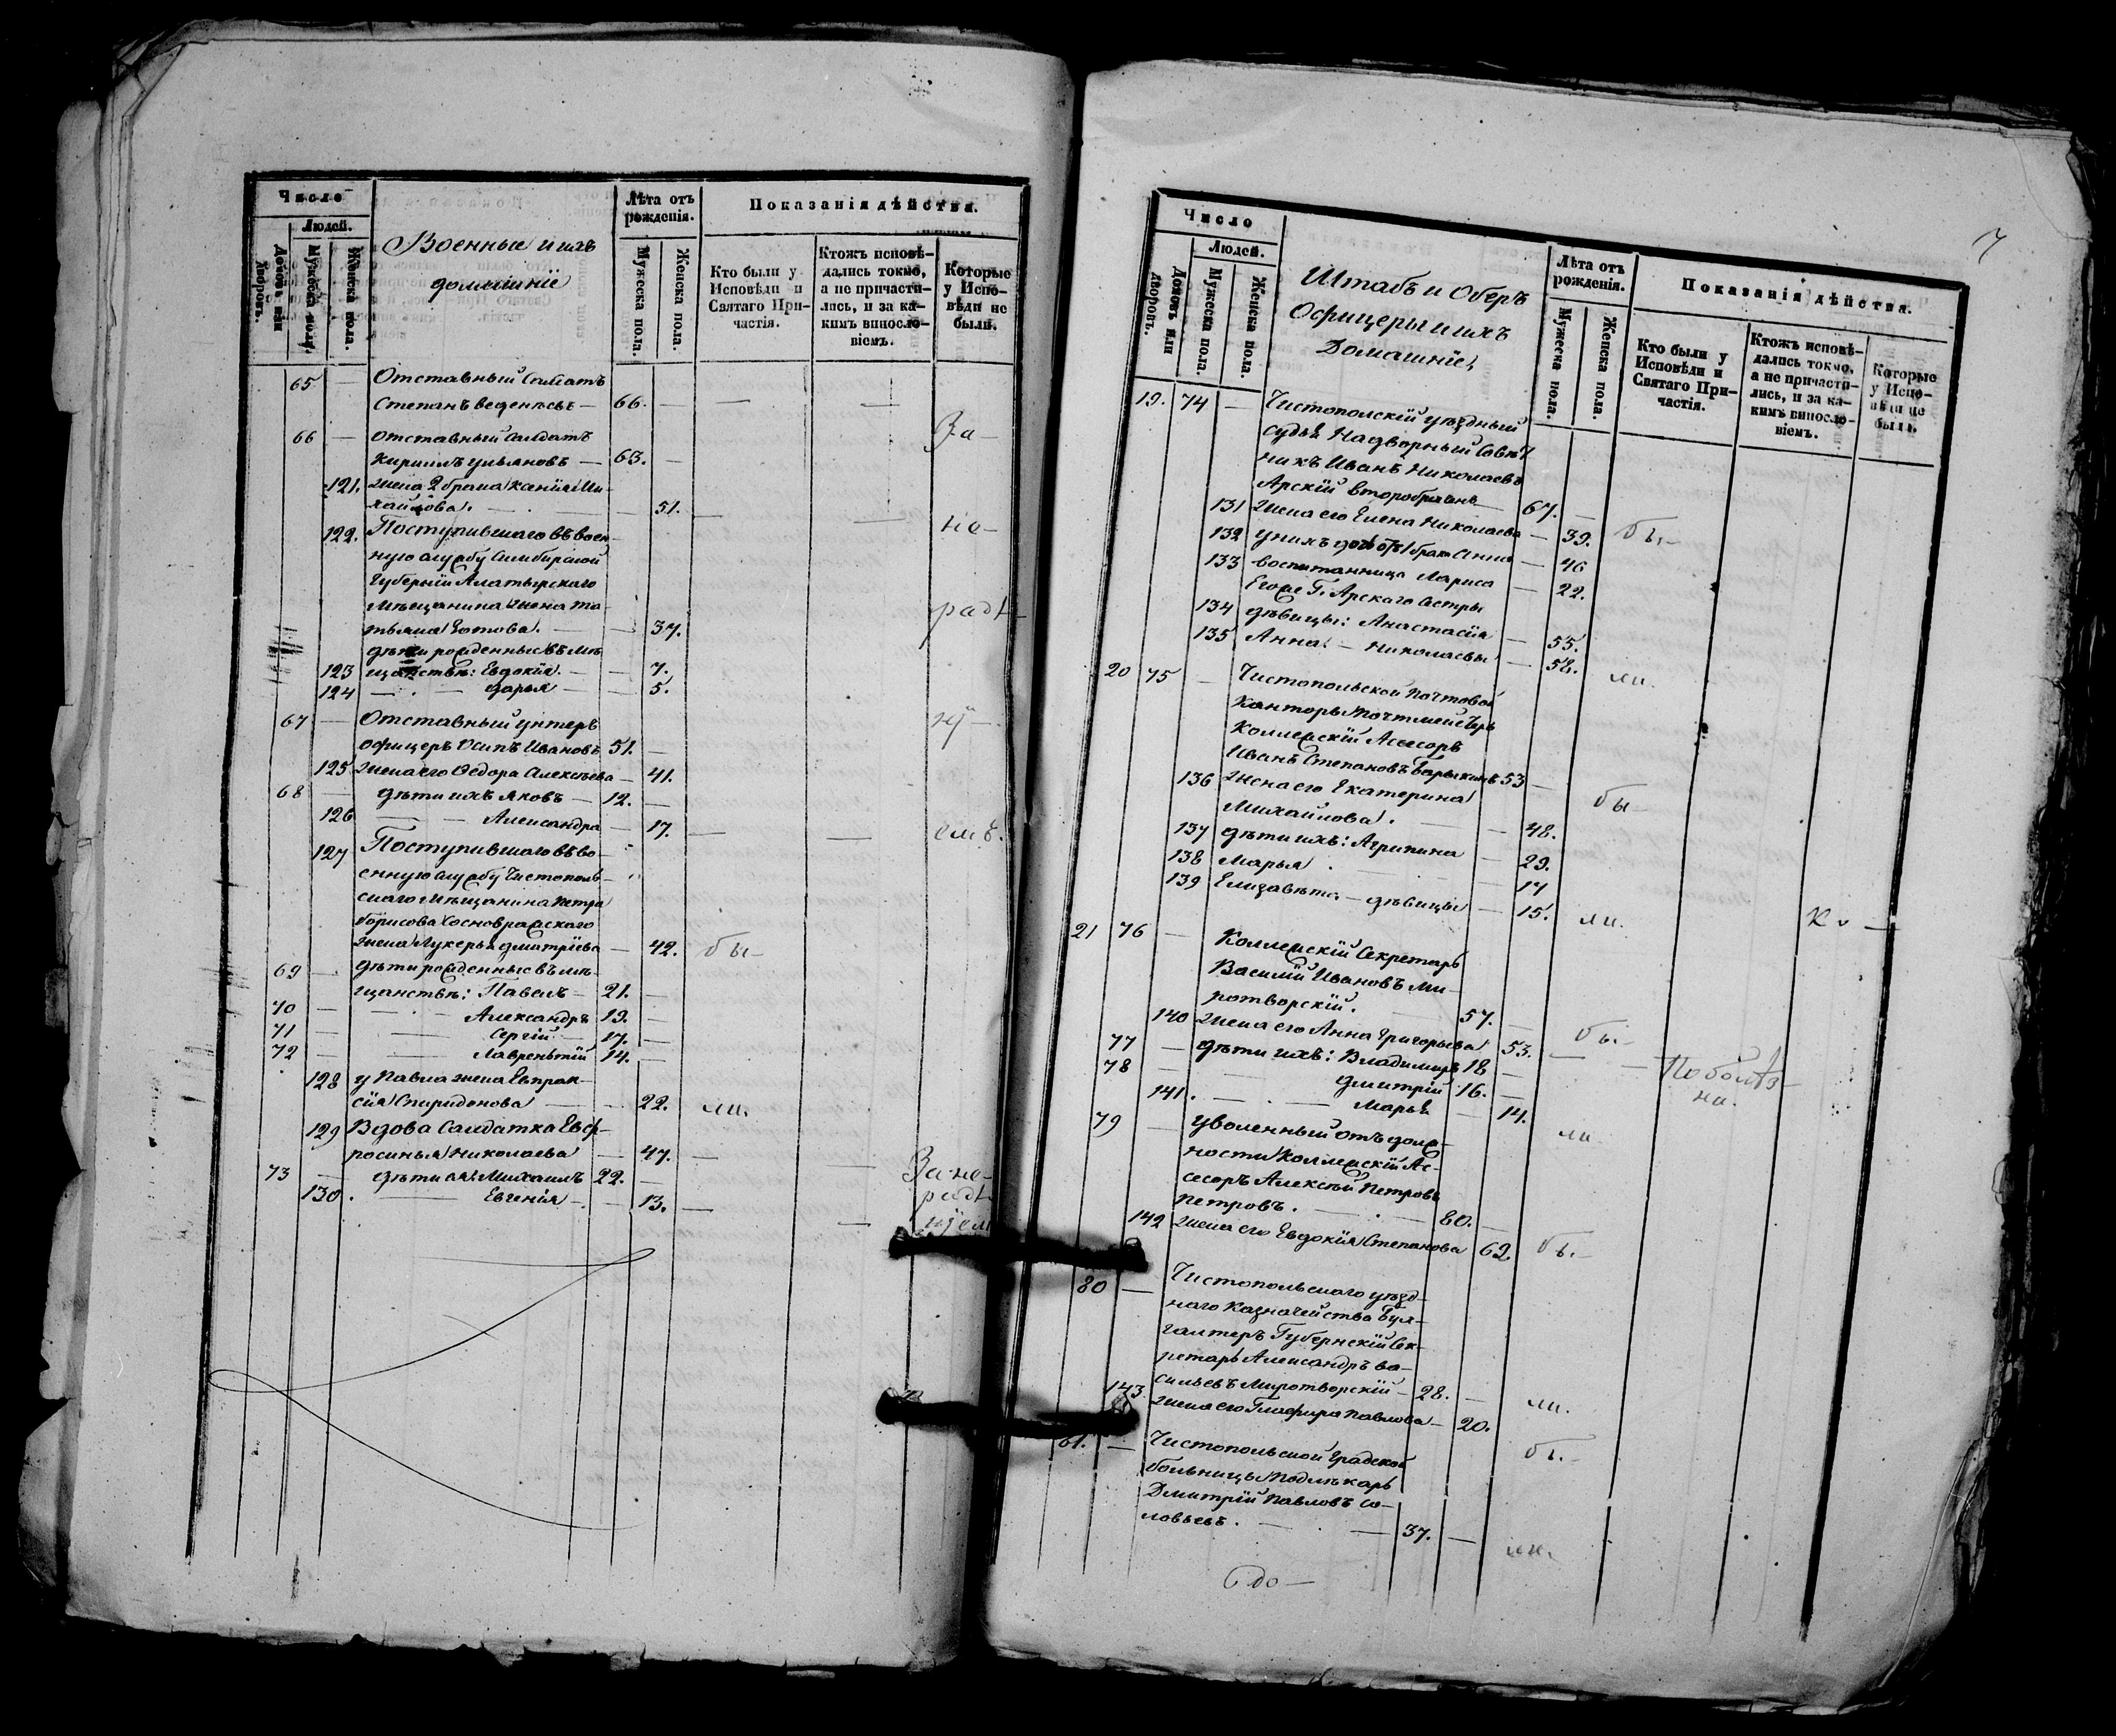 Число
Людей.
Домовъ или дворовъ.
Мужеска пола.
Женска пола.
Военные и ихъ
домашніе
Лѣта отъ
рожденія.
Мужеска пола.
Женска пола.
Показанія дѣйства.
Кто были у
Исповѣди и
Святаго При-
частія.
Ктожъ исповѣ-
дались токмо,
а не причасти-
лись, и за ка-
кимъ винослo-
віемъ.
Которые
у Испо-
вѣди не
были.
65 — Отставный Солдатъ
Степанъ — 66. —
66 — отставный Солдатъ За-
Кириллъ Ульяновъ — 63. —
121. жена 2 брака Ксенія Ми-
хайлова. — 51. —
122. Поступившаго въ воен- не-
ную службу Симбирской
Губерніи Алатырскаго
Мѣщанина жена Та- радѣ-
тьяна Котова. — 37.
дѣти рожденные въ мѣ-
123 щанствѣ: Евдокія. — 7.
124 — Дарья — 5.
67 — Отставный унтеръ ні-
офицеръ Осипъ Ивановъ 51. —
125 жена его Ѳедора Алексѣева — 41.
68 — дѣти ихъ Яковъ — 12. —
126 — Александра — 17. — емъ.
127 Поступившаго въ во-
енную службу Чистополь-
скаго мѣщанина Петра
Борисова
жена Лукерья Дмитріева — 42. бы-
69 — дѣти рожденные въ мѣ-
щанствѣ: Павелъ — 21. —
70 — Александръ 19. —
71 — Сергій — 17. —
72 — Лаврентій 14. —
128 у Павла жена Евпрак-
сія Спиридонова — 22. ли.
129 Вдова Солдатка Евф-
росинья Николаева — 47. —
73 — дѣти ея: Михаилъ 22. — За не-
130. — Евгенія — 13. — радѣ-
ніем
7
Число
Людей.
Домовъ или дворовъ.
Мужеска пола.
Женска пола.
Штабъ и Оберъ
Офицеры и ихъ
Домашніе
Лѣта отъ
рожденія.
Мужеска пола.
Женска пола.
Показанія дѣйства.
Кто были у
Исповѣди и
Святаго При-
частія.
Ктожъ исповѣ-
дались токмо,
а не причасти-
лись, и за ка-
кимъ винослo-
віемъ.
Которые
у Испо-
вѣди не
были.
19. 74 — Чистопольскій уѣздный
судья Надворный Совѣт
никъ Иванъ Николаевъ
Арскій второбрачный — 67. —
131 жена его Елена Николаева — 39. бы-
132 у нихъ дочь отъ 1 брака Анна — 46
133 воспитанница Лариса — 22.
Его же Г. Арскаго Сестры
134 дѣвицы: Анастасія — 55.
135 Анна — Николаевы — 58. ли.
20 75 — Чистопольской Почтовой
Конторы Почтмейстеръ
Коллежскій Ассесоръ
Иванъ Степановъ 53 —
136 жена его Екатерина бы-
Михайлова. — 48.
137 дѣти ихъ: Агрипина — 29.
138 Марья. — 17
139 Елизавѣта. — дѣвицы — 15. ли.
21 76 — Коллежскій Секретарь
Василій Ивановъ Ми-
ротворскій. — 57. —
140 жена его Анна Григорьева 53. бы-
77 — дѣти ихъ: Владимиръ 18 — По болѣз-
78 — Дмитрій 16. — ни.
141. — Марья — 14.
79 — уволенный отъ долж- ли
ности Коллежскій Ас-
сесоръ Алексѣй Петровъ
Петровъ. — 80. —
142 жена его Евдокія Степанова 62. бы-
80 — Чистопольскаго уѣзд-
наго Казначейства Бух-
галтеръ Губернскій Сек-
ретарь Александръ Ва-
сильевъ Миротворскій — 28. — ли.
143. жена его Глафира Павлова — 20.
81. — Чистопольской Градской бы-
больницы Подлѣкарь
Дмитрій Павловъ Со-
ловьевъ. — 37. — ли.